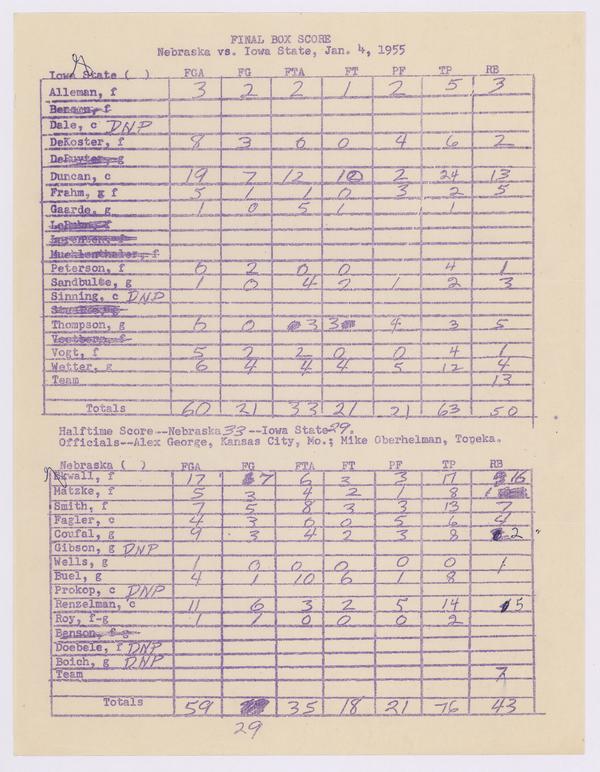 FINAL BOX SCORE
Nebraska vs. Iowa State, Jan. 4, 1955
Iowa State ( ) FGA FG FTA FT PF TP RB
Alleman, f 3 2 2 1 2 5 3
Benson, f
Dale, c DNP
DeKoster, f 8 3 0 0 4 6 2
DeRuyter, g
Duncan, c 19 7 12 10 2 24 13
Frahm, g f 5 1 1 0 3 2 5
Gaarde, g 1 0 5 1 1
Muehlenthaler, f
Peterson, f 6 2 0 0 4 1
Sandbulte, g 1 0 4 2 1 2 3
Sinning, c DNP
Thompson, g 6 0 3 3 4 3 5
Vogt, f 5 2 2 0 0 4 1
Wetter, g 6 4 4 4 5 12 4
Team 13
Totals 60 21 33 21 21 63 50
Halftime Score--Nebraska 33--Iowa State 29.
Officials--Alex George, Kansas City, Mo.; Mike Oberhelman, Topeka.
Nebraska ( ) FGA FG FTA FT PF TP RB
Ekwall, f 17 7 6 3 3 17 16
Matzke, f 5 3 4 2 1 8 1
Smith, f 7 5 8 3 3 13 7
Fagler, c 4 3 0 0 5 6 4
Coufal, g 9 3 4 2 3 8 2
Gibson, g DNP
Wells, g 1 0 0 0 0 0 1
Buel, g 4 1 10 6 1 8
Prokop, c DNP
Renzelman, c 11 6 3 2 5 14 5
Roy, f-g 1 1 0 0 0 2
Benson, f-g
Doebele, f DNP
Boich, g DNP
Team 7
Totals 59 35 18 21 76 43
29